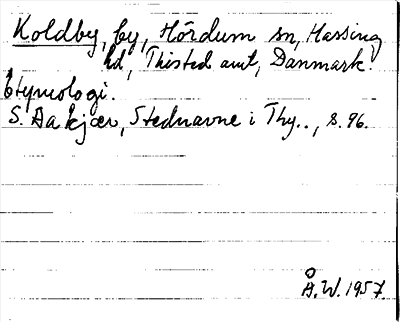 Koldby, by, Hördum sn, Hassing
hd, Thisted amt, Danmark.
Etymologi.
S. Aakjær, Stednavne i Thy.., s. 96.
Å.W. 1957.